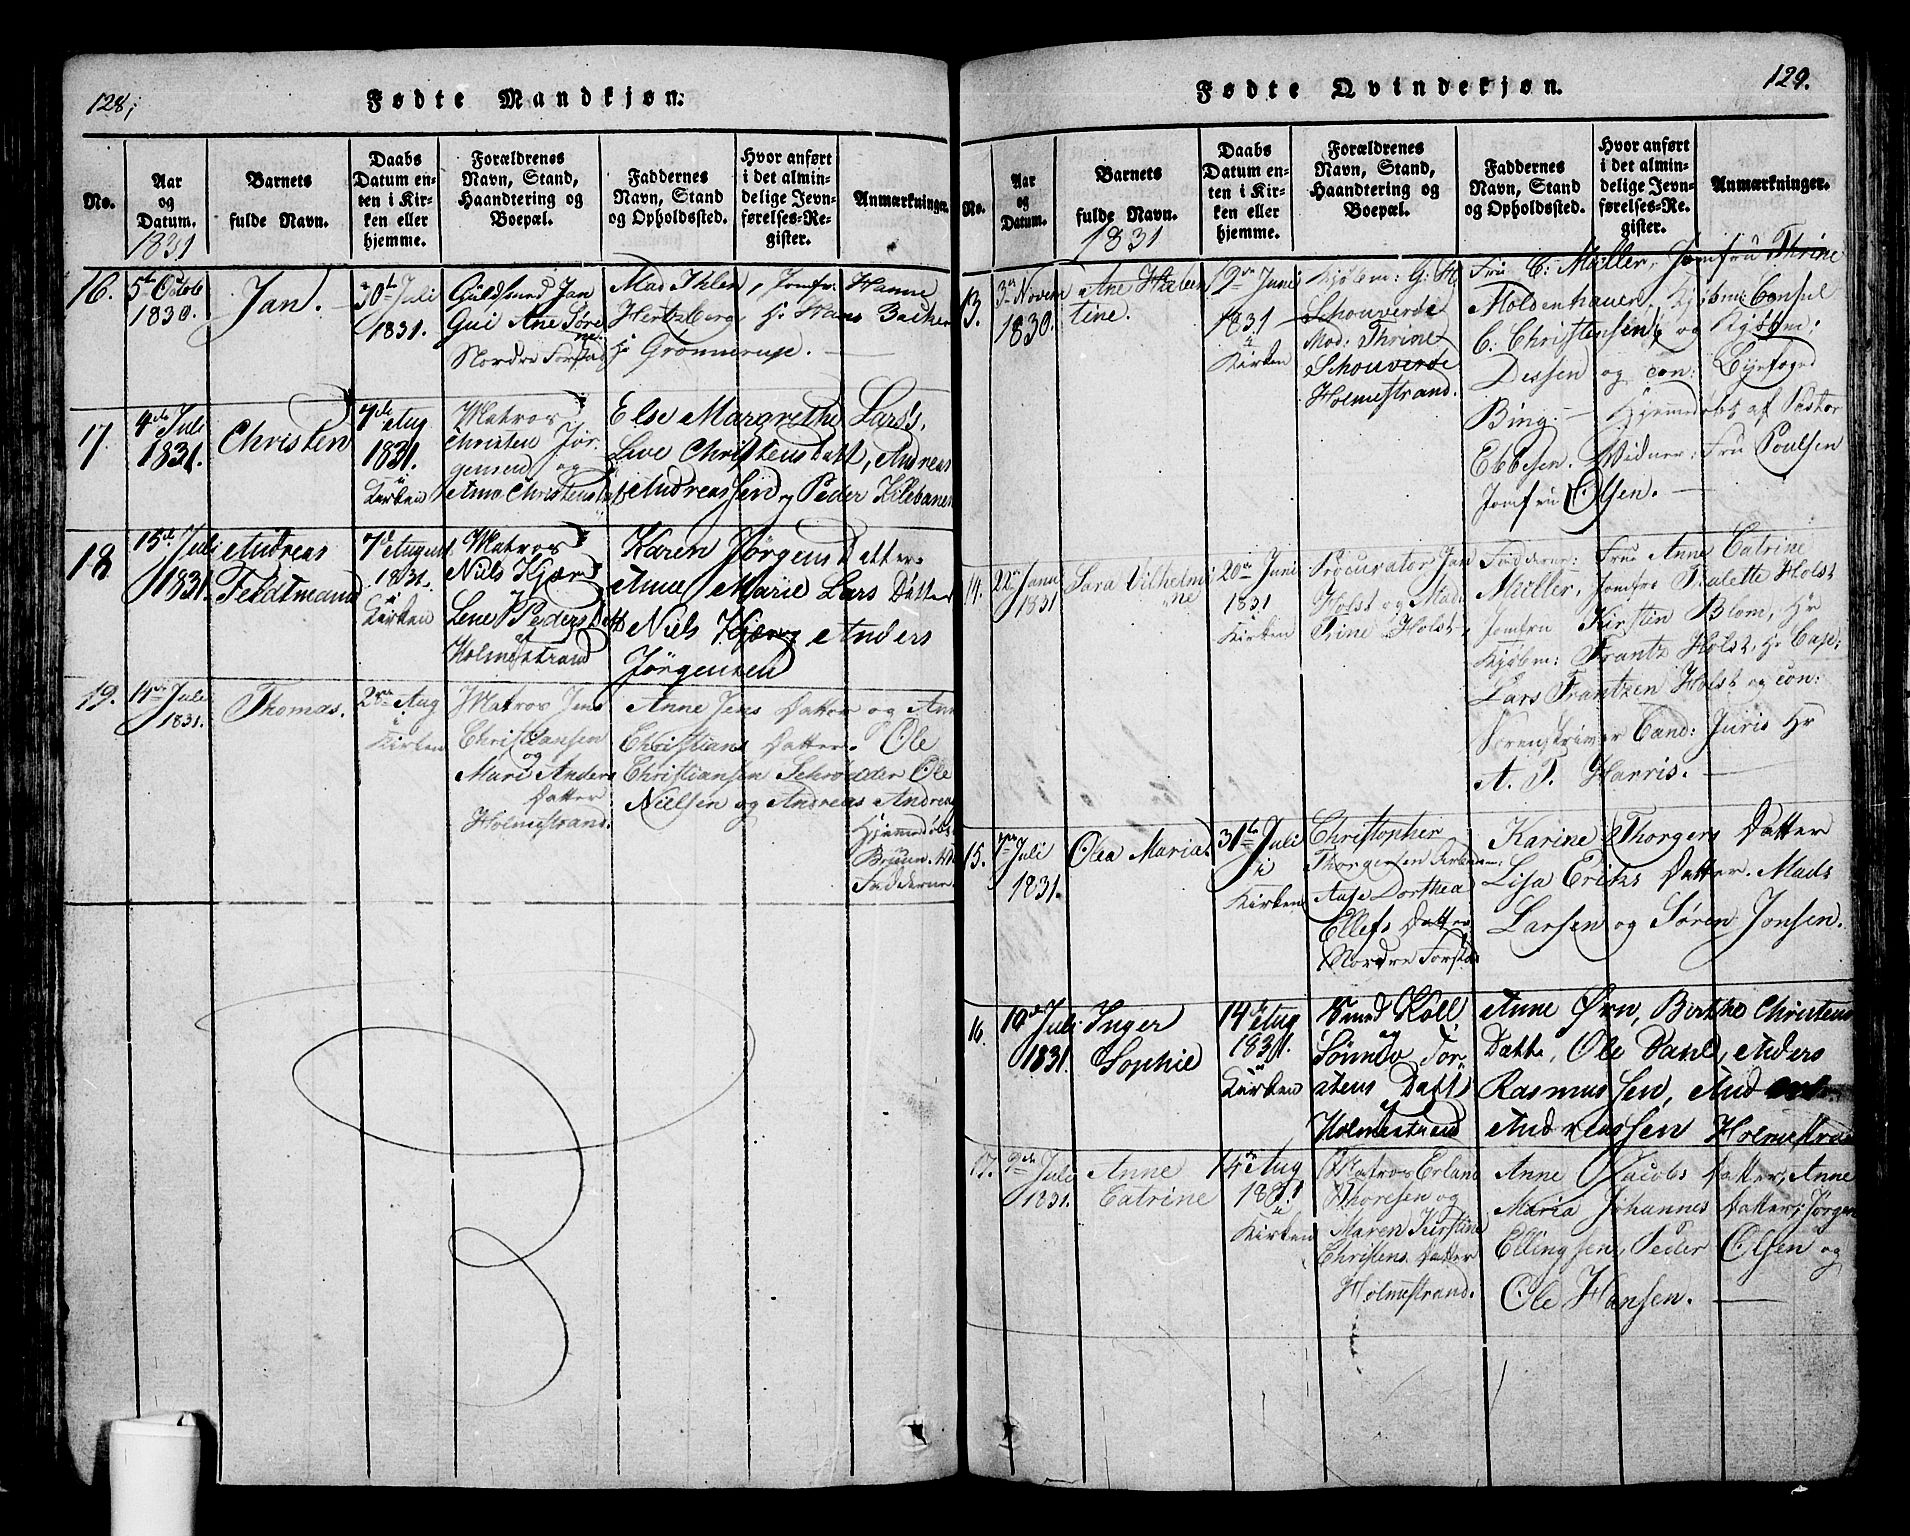 128,
Fødte Mandkjøn.
No.
Aar
og
Datum.
1831
Barnets
fulde Navn.
Daabs
Datum en-
ten i Kir-
ken eller
hjemme.
Forældrenes
Navn, Stand,
Haandtering og
Boepæl.
Faddernes
Navn, Stand
og Opholdssted.
Hvor anført
i det almin-
delige Jevn-
førelses-Re-
gister.
Anmærkninger.
16.
5te Octob
1830.
Jan.
30te Juli
1831.
Guldsmed Jan
Gui Ane Søre
Nordre Forstad
Mad Ihlen, Jomfr: Hanne
Hertzberg, Hr Hans Backer
Hr Grønnerup.
17
4de Juli
1831.
Christen
7de Aug
1831.
i
Kirken
Matros
Christen Jør-
gensen og
Anne Christensd
Else Margrethe Lars's,
Live Christensdatt, Andreas
Andreassen og Peder Killebanen
18
15de Juli
1831.
Andreas
Feldtmand
7de August
1831.
i
Kirken
Matros
Niels Kjær
Lene Peders Datt
af
Holmestrand
Karen Jørgens Datter
Anne Marie Lars Datter
Niels Kjær og Anders
Jørgensen
19.
14de Juli
1831.
Thomas.
Aug
i
Kirken
Matros Jens
Christiansen
og
Mari Anders
Datter
Holmestrand.
Anne Jens Datter og Ann
Christians Datter. Ole
Christiansen Schrødder Ole
Nielsen og Andreas Andreas
Hjemmedøbt
Fadderne.
129.
Fødte Qvindekjøn.
No.
Aar
og
Datum.
Barnets
fulde Navn.
1831
Daabs
Datum en-
ten i Kir-
ken eller
hjemme.
Forældrenes
Navn, Stand,
Haandtering og
Boepæl.
Faddernes
Navn, Stand
og Opholdssted.
Hvor anført
i det almin-
delige Jevn-
førelses-Re-
gister.
Anmærkninger.
13.
3die Novem
1830.
Ane
tine.
19de Juni
1831
i
Kirken
Kjøbm: G: H
Schouverde
Mad: Thrine
Schouverde
Holmestrand.
Fru C: Müller, Jomfru Thrine
Moldenhauer, Kjøbm: Consul
C: Christensen, og Kjøbm:
Dessen og con: Byefoged
Bing. Hjemmedøbt af Pastor
Ebbesen. Vidner: Fru Poulsen
Jomfru Olsen.
14.
22de Janu
1831
Sara Vilhelmi
ne
20de Juni
1831
i
Kirken
Procurator Jan
Holst og Mad:
Trine Holst,
Fadderne: Fru Anne Catrine
Müller, Jomfru Tralette Holst
Jomfru Kirstin Blom, Hr
Kjøbm: Frantz Holst, Hr Cap:
Lars Frantzen Holst og con:
Sorenskriver Cand: Juris Hr
A. T. Harris.
15.
7de Juli
1831.
Olea Maria.
31te Juli
i
Kirken
Christopher
Thorgersen
Aase Dorthea
Ellefs Datter
Nordre Forstad
Karine Thorgers Datter
Lisa Eriks Datter. Mads
Larsen og Søren Jonsen.
16.
10de Juli
1831.
Inger
Sophie
14de Aug
1831.
i
Kirken
Knud Koll
og
Sønnev Tor-
stens Datt
af
Holmestrand
Anne Ørn, Birthe Christens
Datt, Ole Dahl, Anders
Rasmussen, And
Andreassen Holmestrand
17.
9de Juli
1831.
Anne
Catrine
14de Aug
1831
i
Kirken
Matros Erland
Thoresen og
Maren Kirstine
Christens Datter
Holmestrand.
Anne Jacobs Datter, Anne
Maria Johannes Datter, Jørgen
Ellingsen, Peder Olsen og
Ole Hansen.